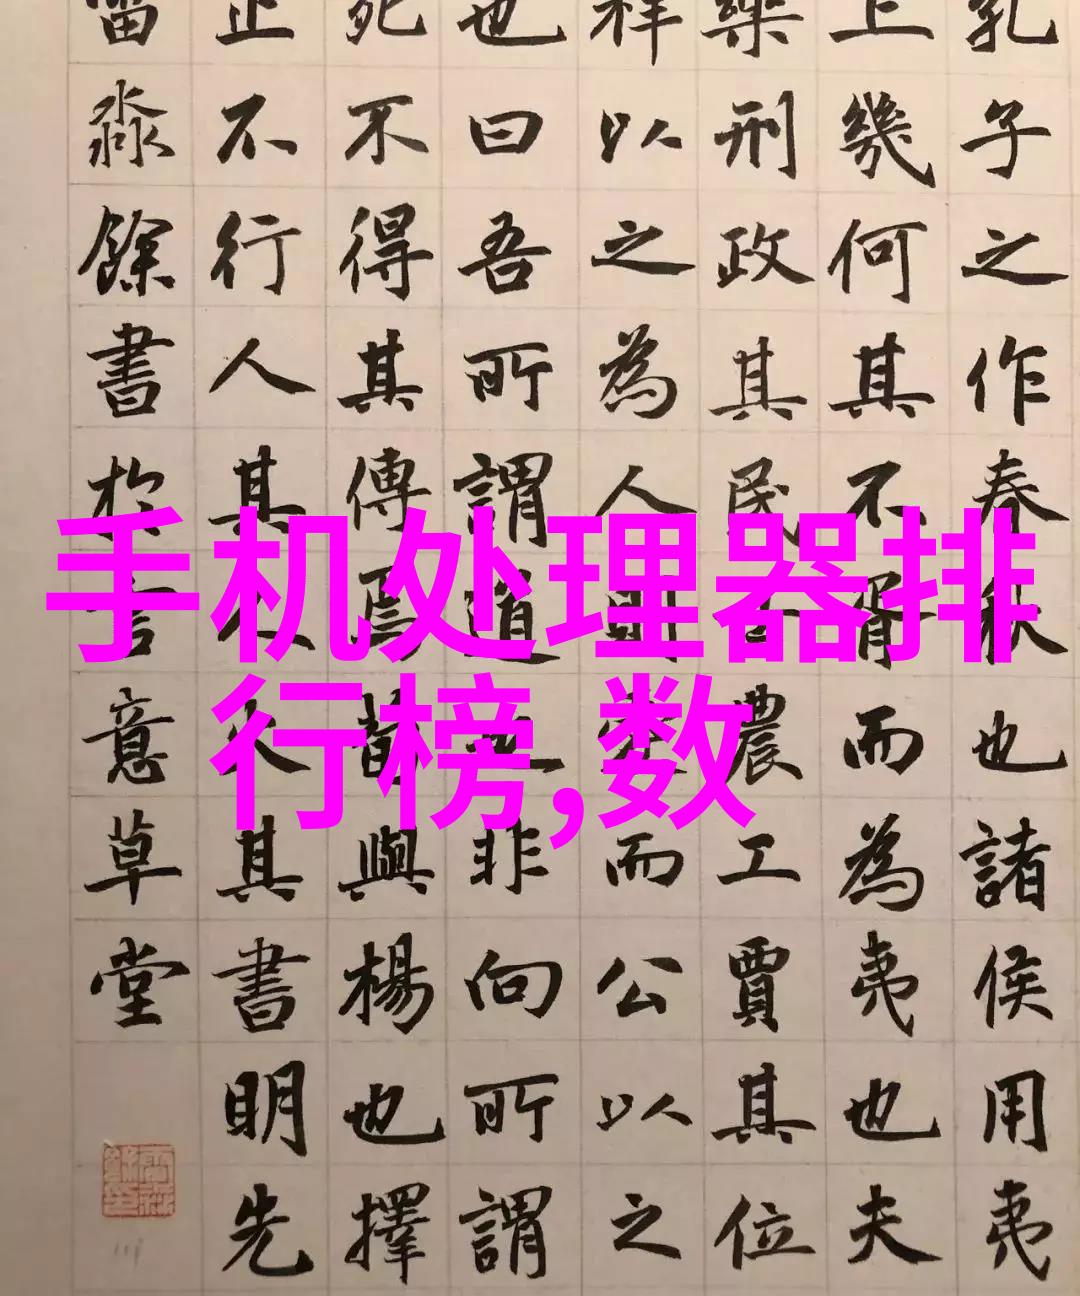 孔子之作春秋也諸侯用夷
上幾何其不胥而為夷也夫
樂刑政其民士農工賈其位
祥以之為人則愛而公以之
也曰吾所謂道也非向所謂
死不得其傳焉荀與楊也擇
止不行人其人火其書明先
雷淼餘書於言意草堂
手机处理器排
行榜,数